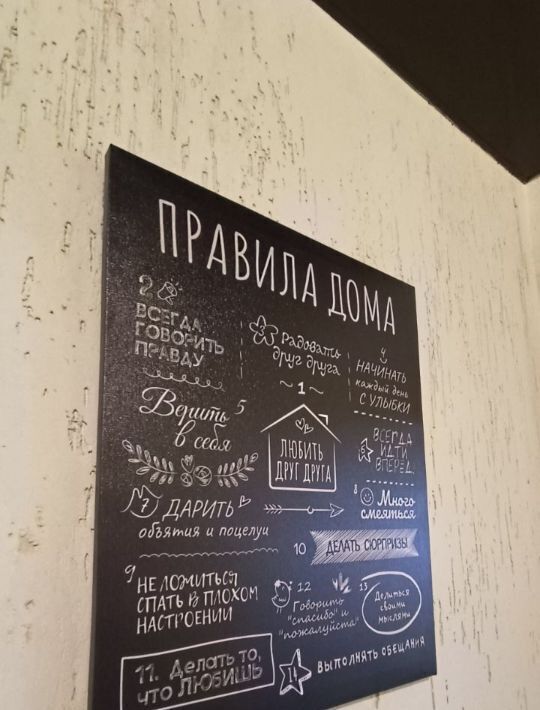 ПРАВИЛА ДОМА
2
ВСЕГДА
ГОВОРИТЬ
ПРАВДУ
3 Радовать
друг друга
4
НАЧИНАТЬ
каждый день
С УЛЫБКИ
1
ЛЮБИТЬ
ДРУГ ДРУГА
Верить 5
в себя
6 ВСЕГДА
ИДТИ
ВПЕРЕД
7 ДАРИТЬ
объятия и поцелуи
8 Много
смеяться
9
НЕ ЛОЖИТЬСЯ
СПАТЬ В ПЛОХОМ
НАСТРОЕНИИ
10 ДЕЛАТЬ СЮРПРИЗЫ
12
Говорить
"спасибо" и
"пожалуйста"
13
Делиться
своими
мыслями
11. Делать то,
что ЛЮБИШЬ
14 ВЫПОЛНЯТЬ ОБЕЩАНИЯ